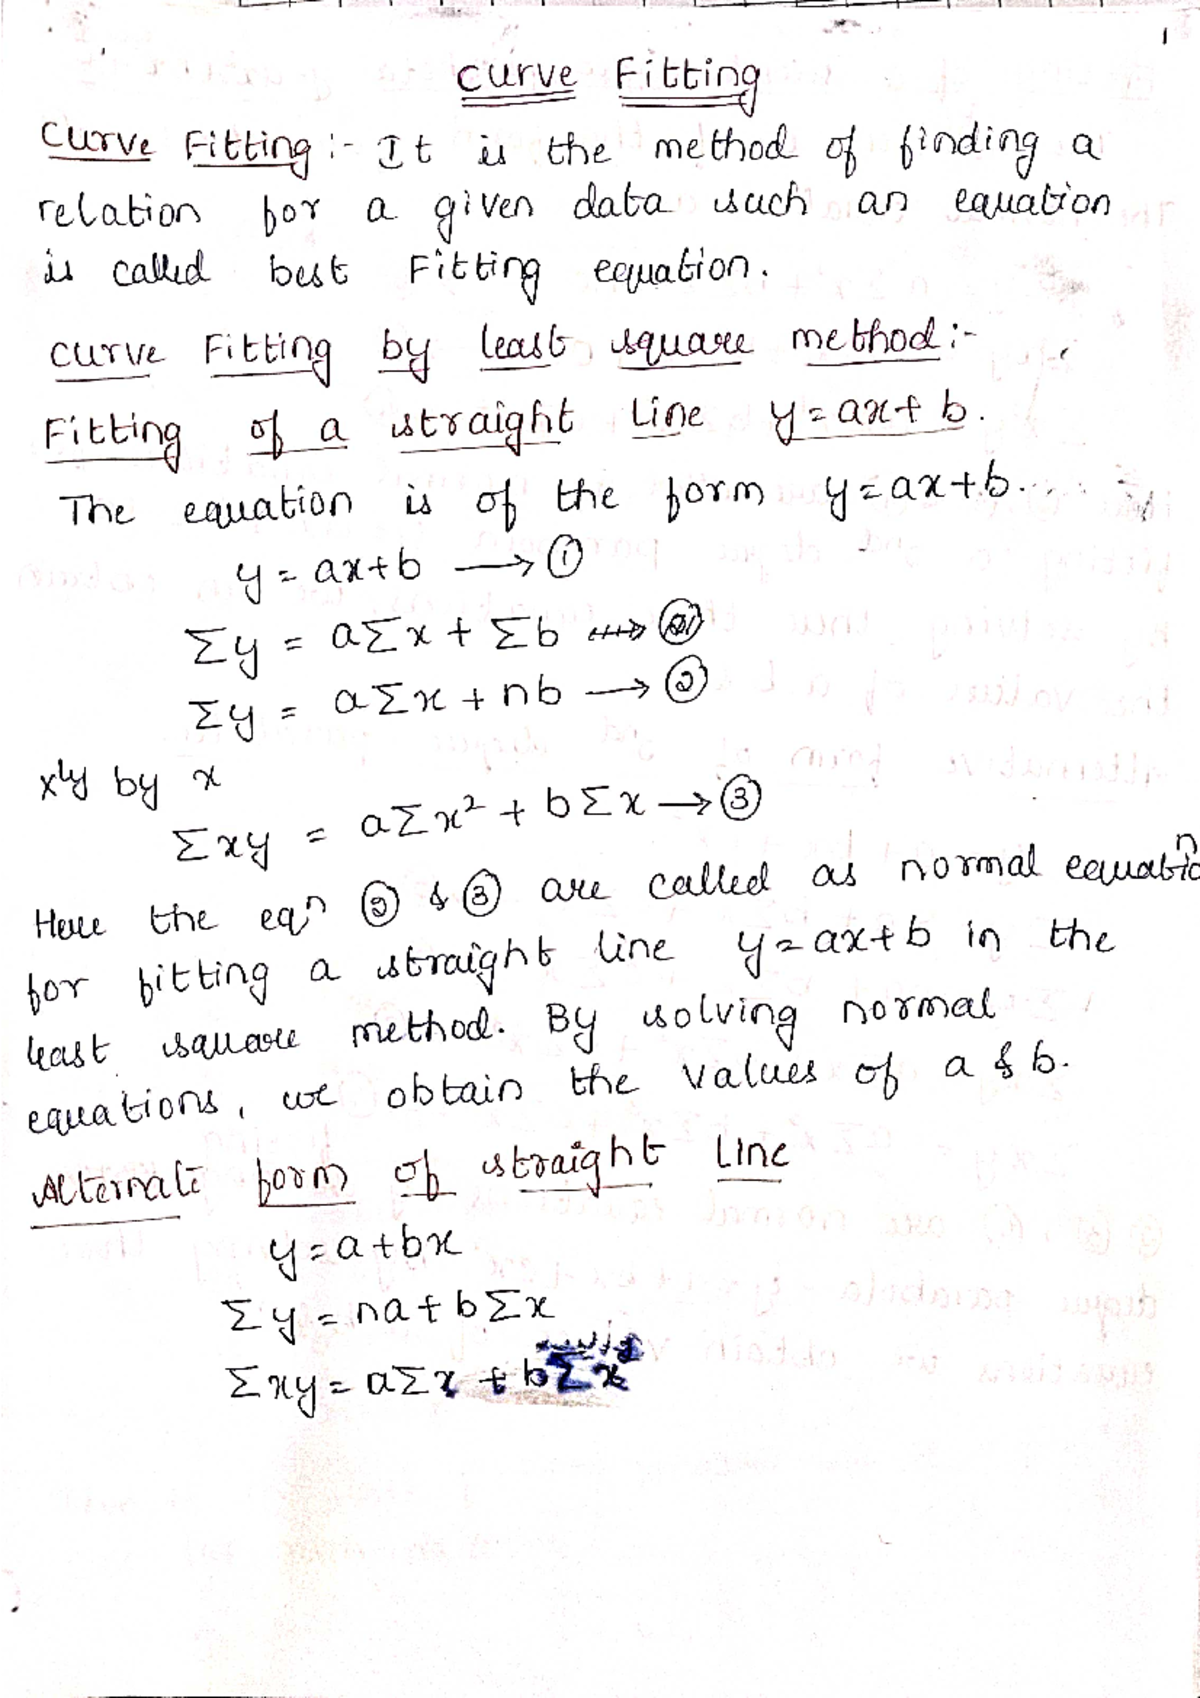 1
Curve Fitting
Curve Fitting :- It is the method of finding a
relation for a given data such an equation
is called best Fitting equation.
Curve Fitting by least square method :-
Fitting of a straight Line y = ax + b.
The equation is of the form y = ax + b.
y = ax + b → ①
Σy = aΣx + Σb
Σy = aΣx + nb → ②
xly by x
Σxy = aΣx² + bΣx → ③
Here the eqⁿ ② & ③ are called as normal equation
for fitting a straight line y = ax + b in the
least square method. By solving normal
equations, we obtain the values of a & b.
Alternate form of straight Line
y = a + bx
Σy = na + bΣx
Σxy = aΣx + bΣx